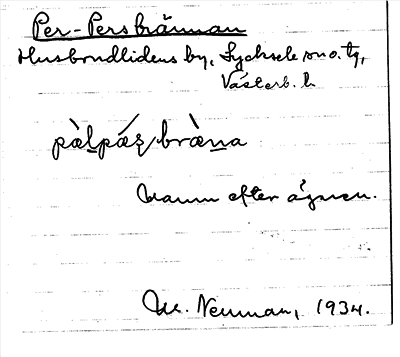 Per-Persbrännan
Husbondlidens by, Lycksele sn o. tg,
Västerb. l.
pàlpáʂbràna
Namn efter ägaren.
M. Neuman, 1934.